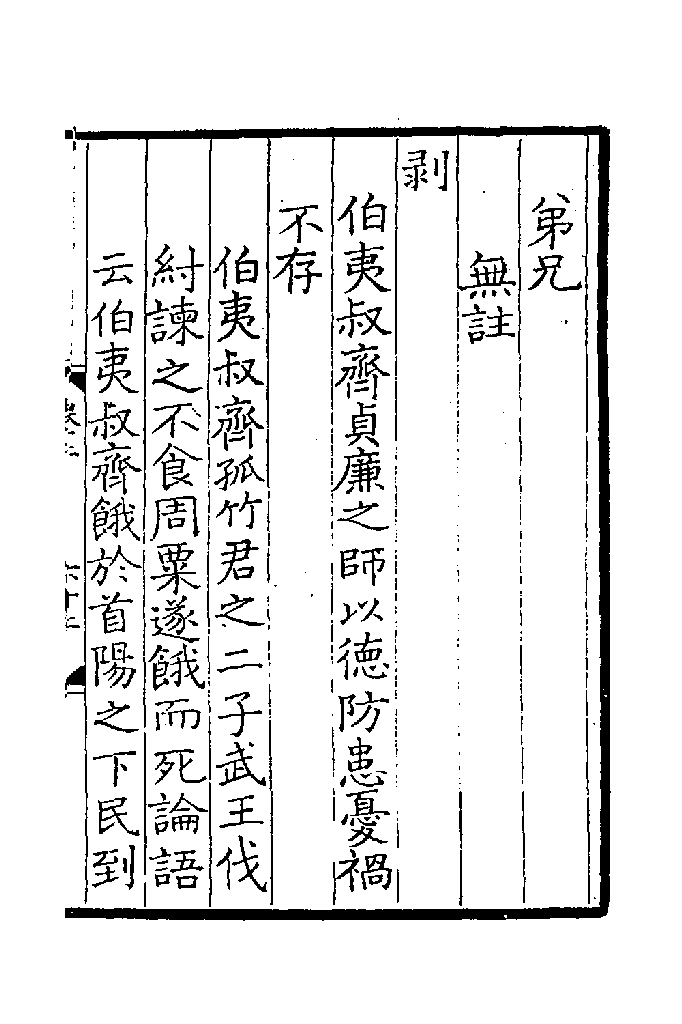 弟兄
無註
剥
伯夷叔齊貞廉之師以德防患憂禍
不存
伯夷叔齊孤竹君之二子武王伐
紂諫之不食周粟遂餓而死論語
云伯夷叔齊餓於首陽之下民到